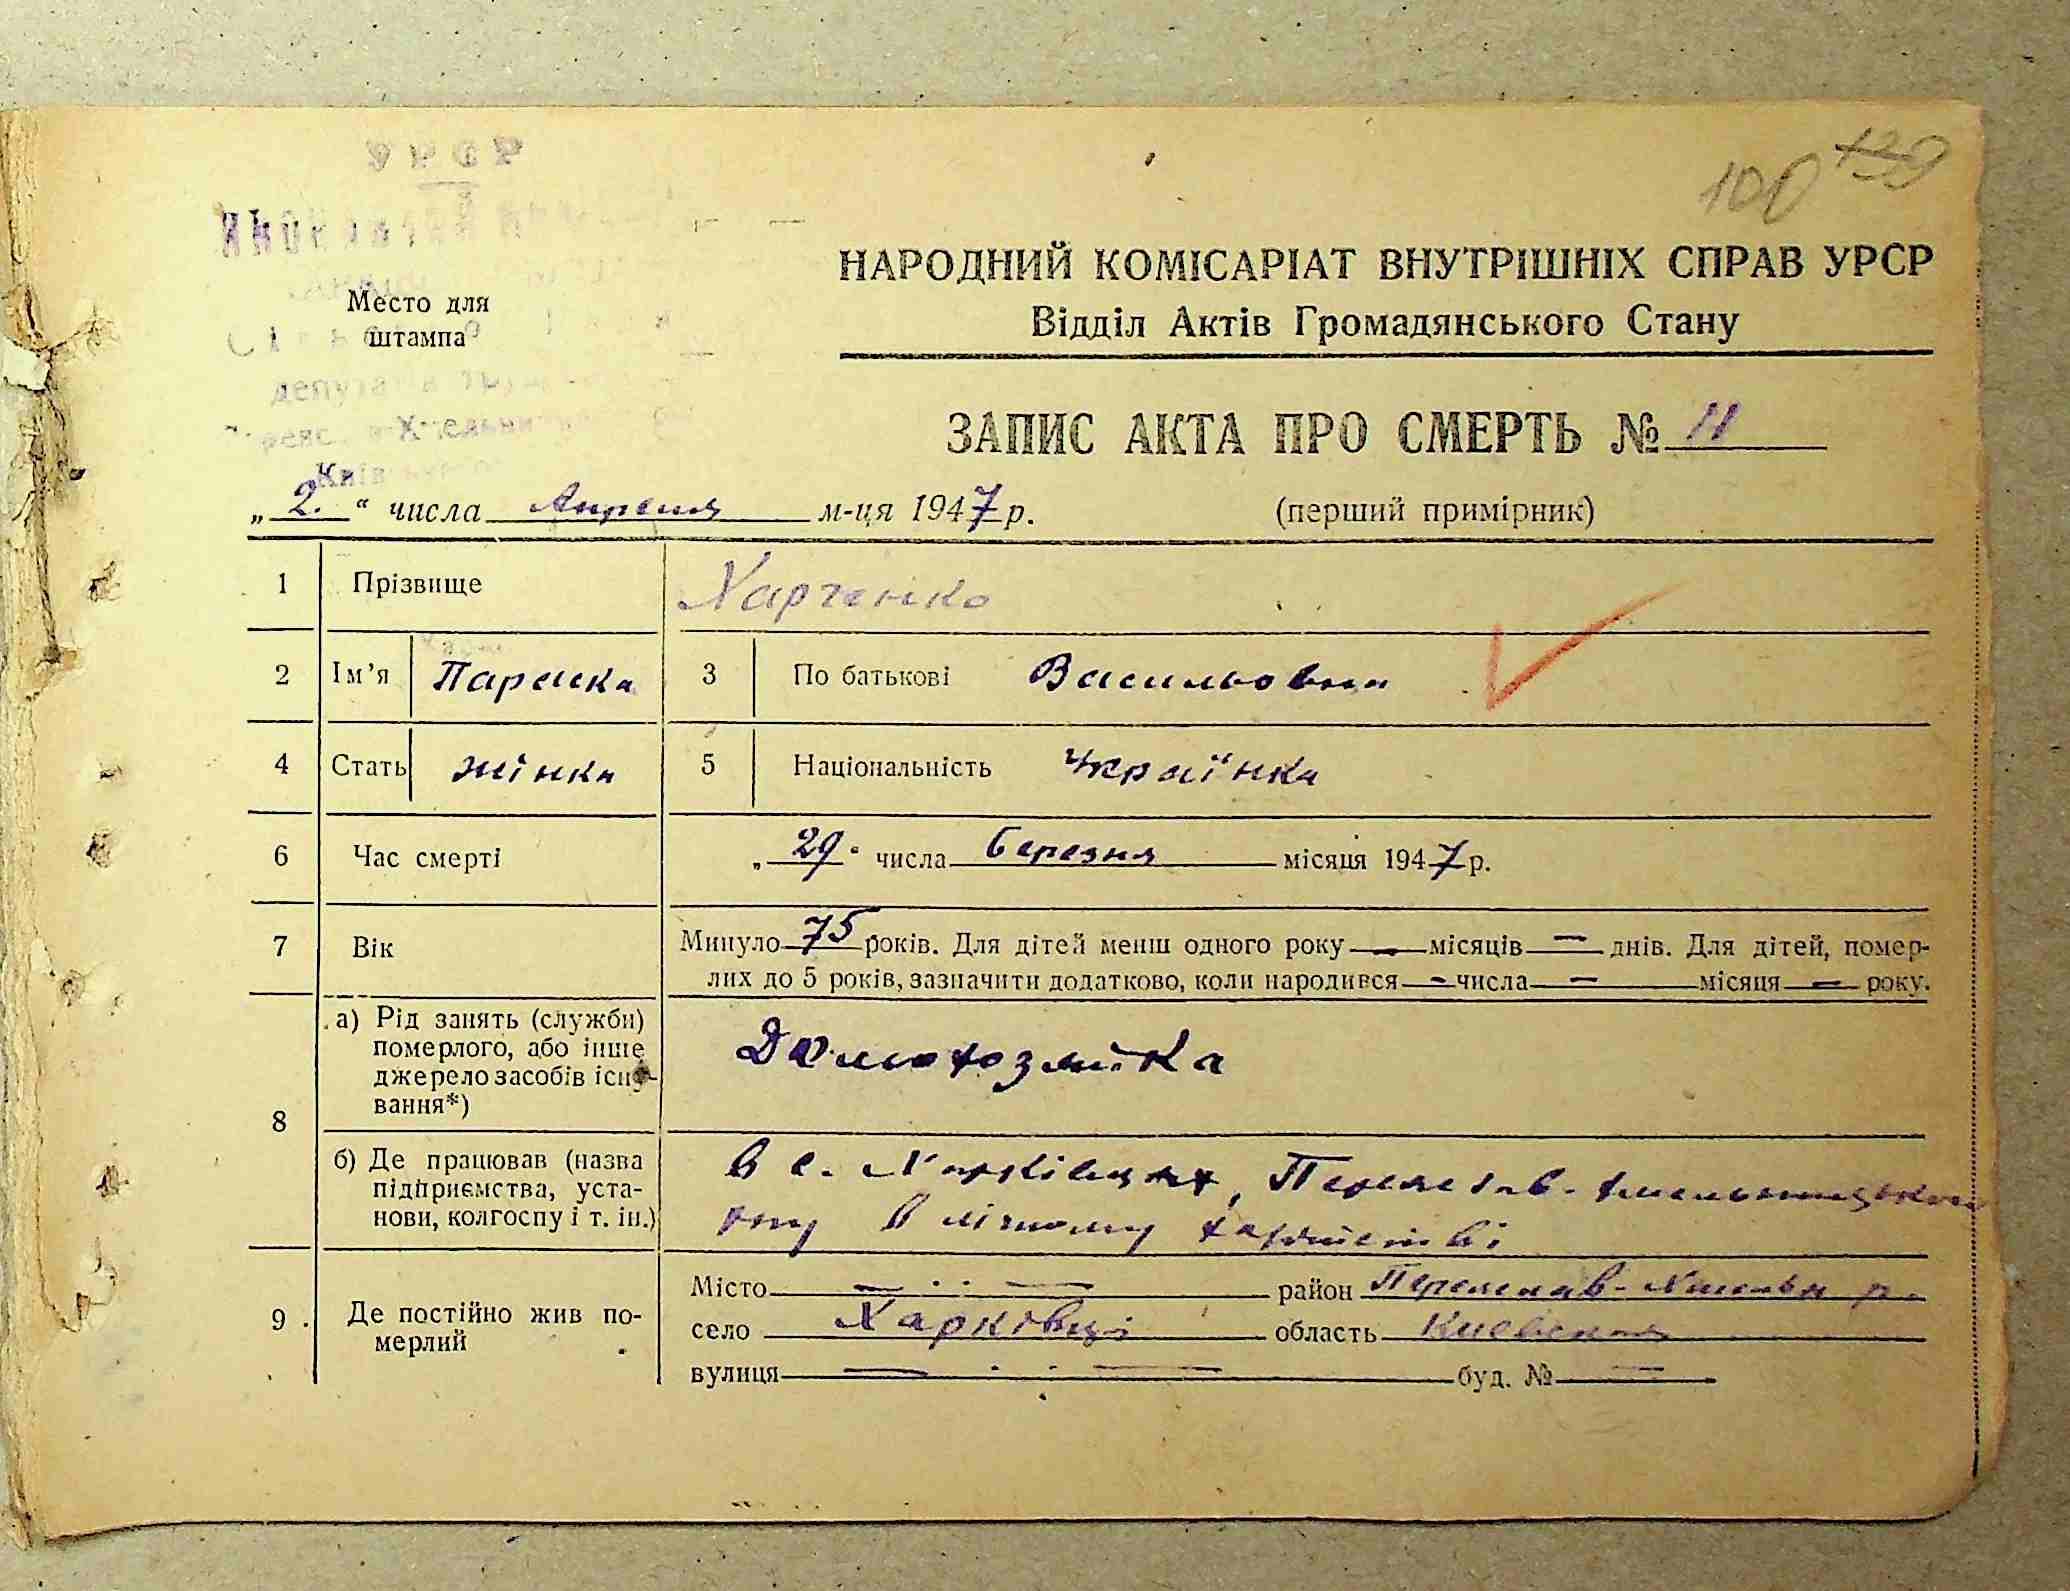 100 139
НАРОДНИЙ КОМІСАРІАТ ВНУТРІШНІХ СПРАВ УРСР
Место для
штампа
Відділ Актів Громадянського Стану
депутатів
ЗАПИС АКТА ПРО СМЕРТЬ № 11
„2.“ числа Апреля м-ця 1947 р. (перший примірник)
1 Прізвище Харченко
2 Ім’я Параска 3 По батькові Васильовна
4 Стать жінка 5 Національність Українка
6 Час смерті „29“ числа березня місяця 1947 р.
7 Вік Минуло 75 років. Для дітей менш одного року — місяців — днів. Для дітей, помер-
лих до 5 років, зазначити додатково, коли народився — числа — місяця — року.
8 а) Рід занять (служби)
померлого, або інше
джерело засобів існу-
вання*)
Домохозяйка
б) Де працював (назва
підприємства, уста-
нови, колгоспу і т. ін.)
в с. Харківцях, Переяслав-Хмельницького
р-ну в лічному хазяйстві
9 Де постійно жив по-
мерлий
Місто — район Переяслав-Хмельн р.
село Харківці область Киевская
вулиця — буд. № —